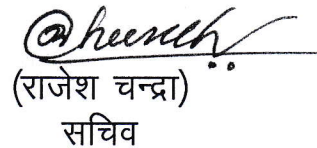 (राजेश चन्द्रा)
सचिव